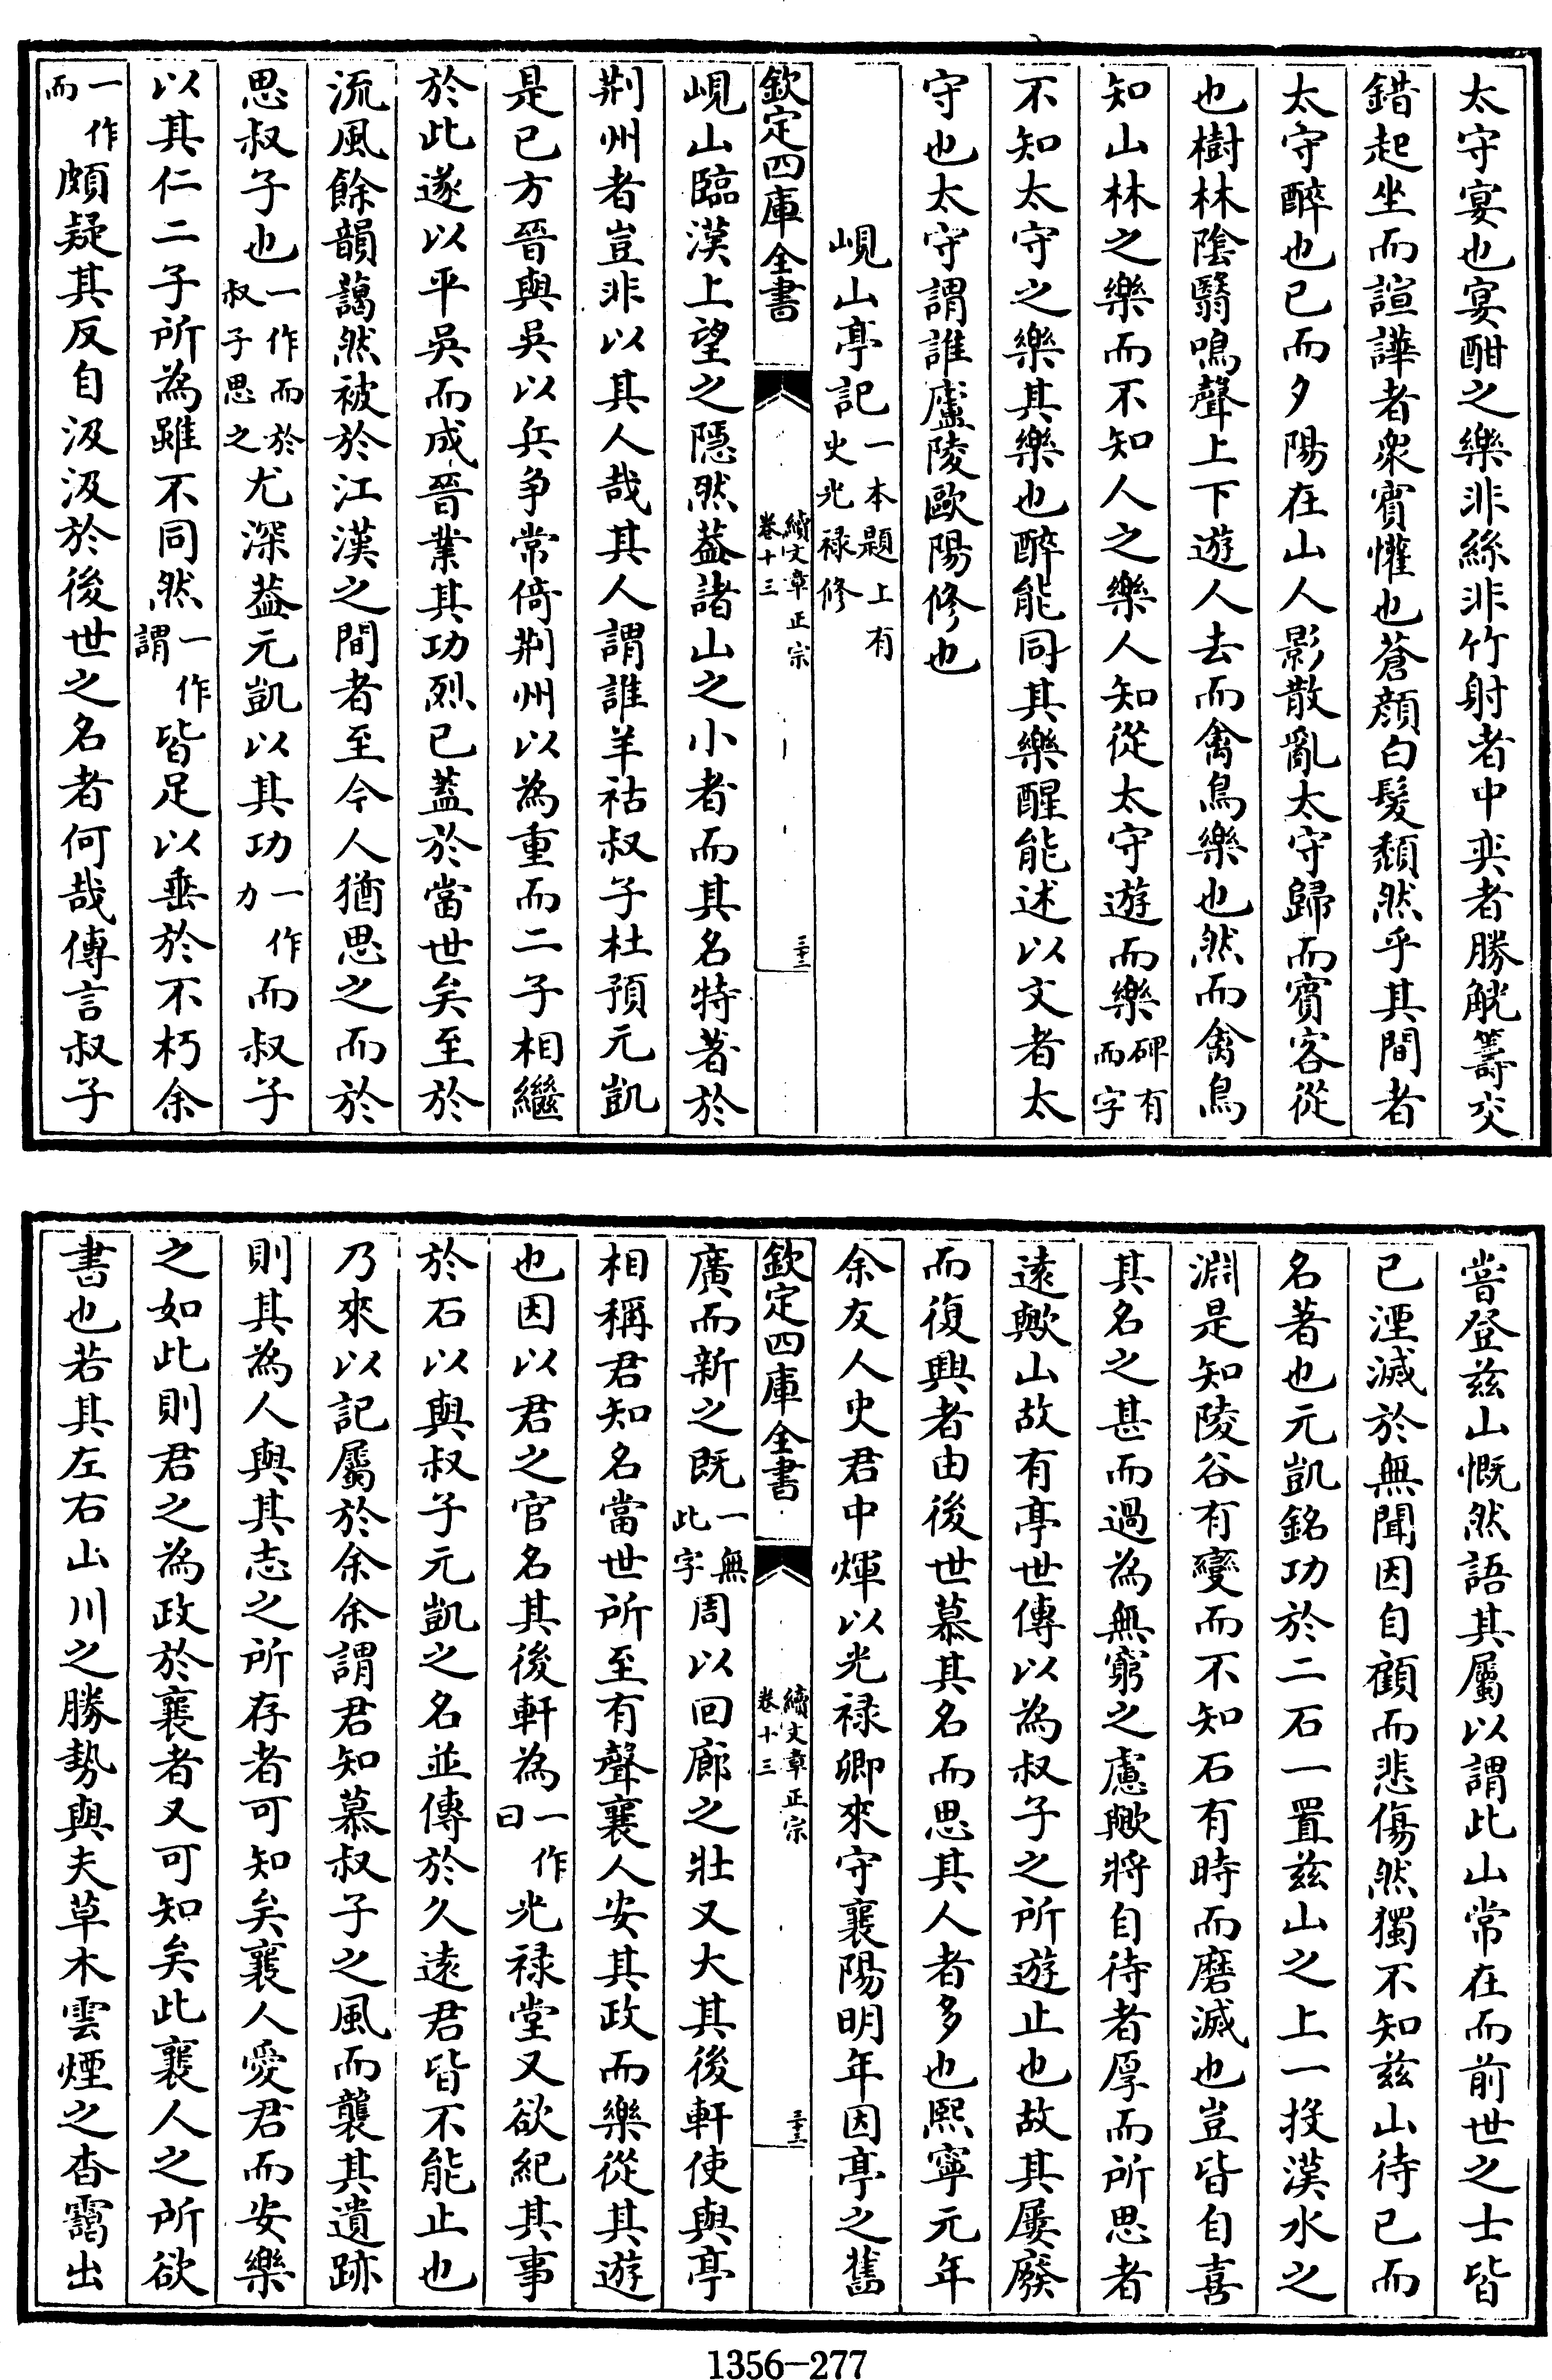 太守宴也宴酣之樂非絲非竹射者中奕者勝觥籌交
錯起坐而諠譁者衆賓懽也蒼顔白髮頽然乎其間者
太守醉也已而夕陽在山人影散亂太守歸而賓客從
也樹林陰翳鳴聲上下遊人去而禽鳥樂也然而禽鳥
知山林之樂而不知人之樂人知從太守遊而樂碑有而字
不知太守之樂其樂也醉能同其樂醒能述以文者太
守也太守謂誰廬陵歐陽修也
峴山亭記一本題上有史光禄修
欽定四庫全書 續文章正宗卷十三 三十二
峴山臨漢上望之隱然蓋諸山之小者而其名特著於
荆州者豈非以其人哉其人謂誰羊祜叔子杜預元凱
是已方晉與吳以兵争常倚荆州以為重而二子相繼
於此遂以平吳而成晉業其功烈已蓋於當世矣至於
流風餘韻藹然被於江漢之間者至今人猶思之而於
思叔子也一作而於叔子思之尤深葢元凱以其功一作力而叔子
以其仁二子所為雖不同然一作謂皆足以垂於不朽余
一作而頗疑其反自汲汲於後世之名者何哉傳言叔子
嘗登兹山慨然語其屬以謂此山常在而前世之士皆
已湮滅於無聞因自顧而悲傷然獨不知兹山待已而
名著也元凱銘功於二石一置兹山之上一投漢水之
淵是知陵谷有變而不知石有時而磨滅也豈皆自喜
其名之甚而過為無窮之慮歟將自待者厚而所思者
遠歟山故有亭世傳以為叔子之所遊止也故其屢廢
而復興者由後世慕其名而思其人者多也熙寧元年
余友人史君中煇以光禄卿來守襄陽明年因亭之舊
欽定四庫全書 續文章正宗卷十三 三十三
廣而新之既一無此字周以回廊之壯又大其後軒使與亭
相稱君知名當世所至有聲襄人安其政而樂從其遊
也因以君之官名其後軒為一作曰光禄堂又欲紀其事
於石以與叔子元凱之名並傳於久遠君皆不能止也
乃來以記屬於余余謂君知慕叔子之風而襲其遺跡
則其為人與其志之所存者可知矣襄人愛君而安樂
之如此則君之為政於襄者又可知矣此襄人之所欲
書也若其左右山川之勝勢與夫草木雲煙之杳靄出
1356-277